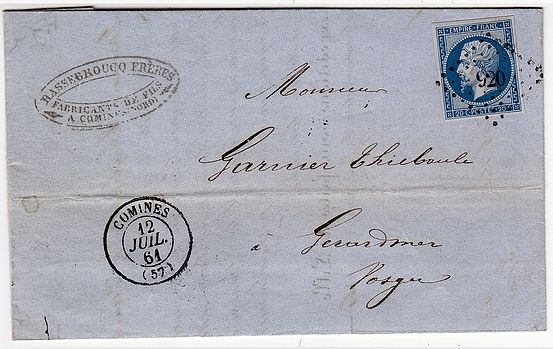 EMPIRE FRANC
920
20 C POSTE 20
FRÈRES
FABRICANTS DE FIL
A COMINES NORD
Monsieur
Garnier Thiebault
à Gerardmer
Vosges
COMINES
12
JUIL.
61
(57)